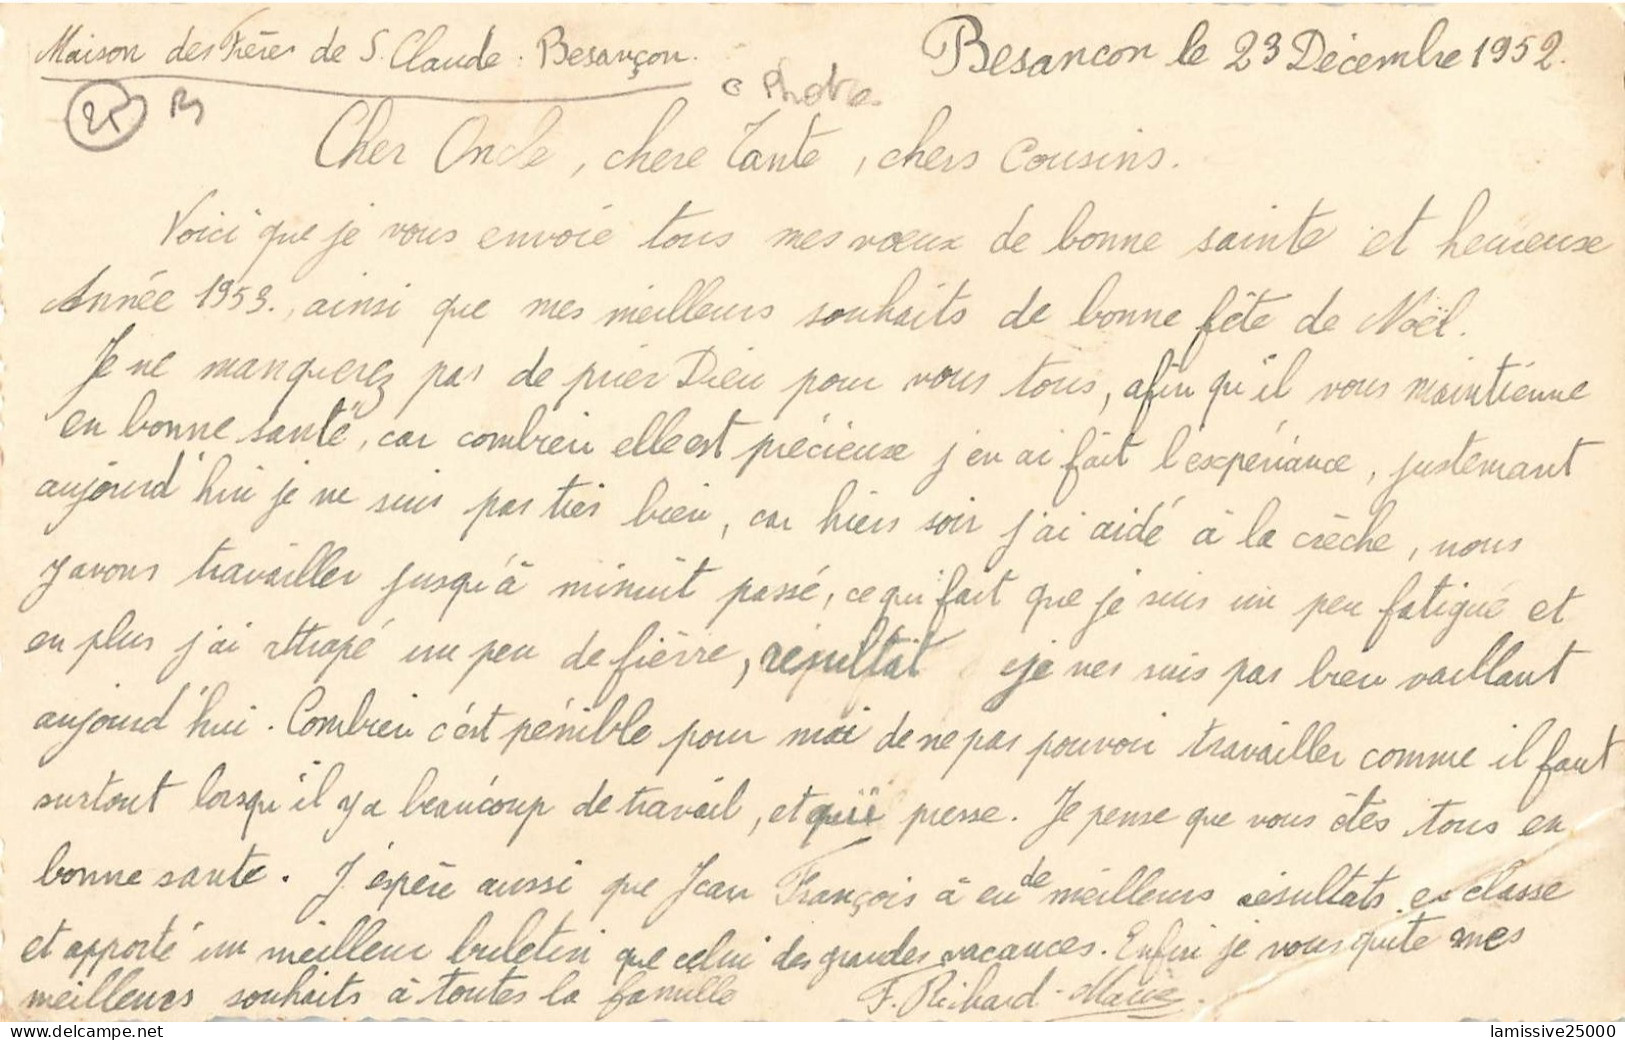 Maison des Frères de S. Claude. Besançon.
Besancon le 23 Décembre 1952.
25 B
Photo
Cher Oncle, chere Tante, chers Cousins.
Voici que je vous envoie tous mes vœux de bonne sainte et heureuse
Année 1953., ainsi que mes meilleurs souhaits de bonne fête de Noël.
Je ne manquerez pas de prier Dieu pour vous tous, afin qu'il vous maintienne
en bonne santé, car combien elle est précieuse j'en ai fait l'expériance, justemant
aujourd'hui je ne suis pas très bien, car hiers soir j'ai aidé à la crèche, nous
y avons travailler jusqu'à minuit passé, ce qui fait que je suis un peu fatigué et
en plus j'ai attrapé un peu de fièvre, résultat je nes suis pas bien vaillant
aujourd'hui. Combien c'est pénible pour moi de ne pas pouvoir travailler comme il faut
surtout lorsqu'il y a beaucoup de travail, et qui presse. Je pense que vous êtes tous en
bonne sante. J'éspère aussi que Jean François à eu de meilleurs résultats en classe
et apporté un meilleur buletin que celui des grandes vacances. Enfin je vous quite mes
meilleurs souhaits à toutes la famille F. Richard-Marie.
lamissive25000
https://www.delcampe.net